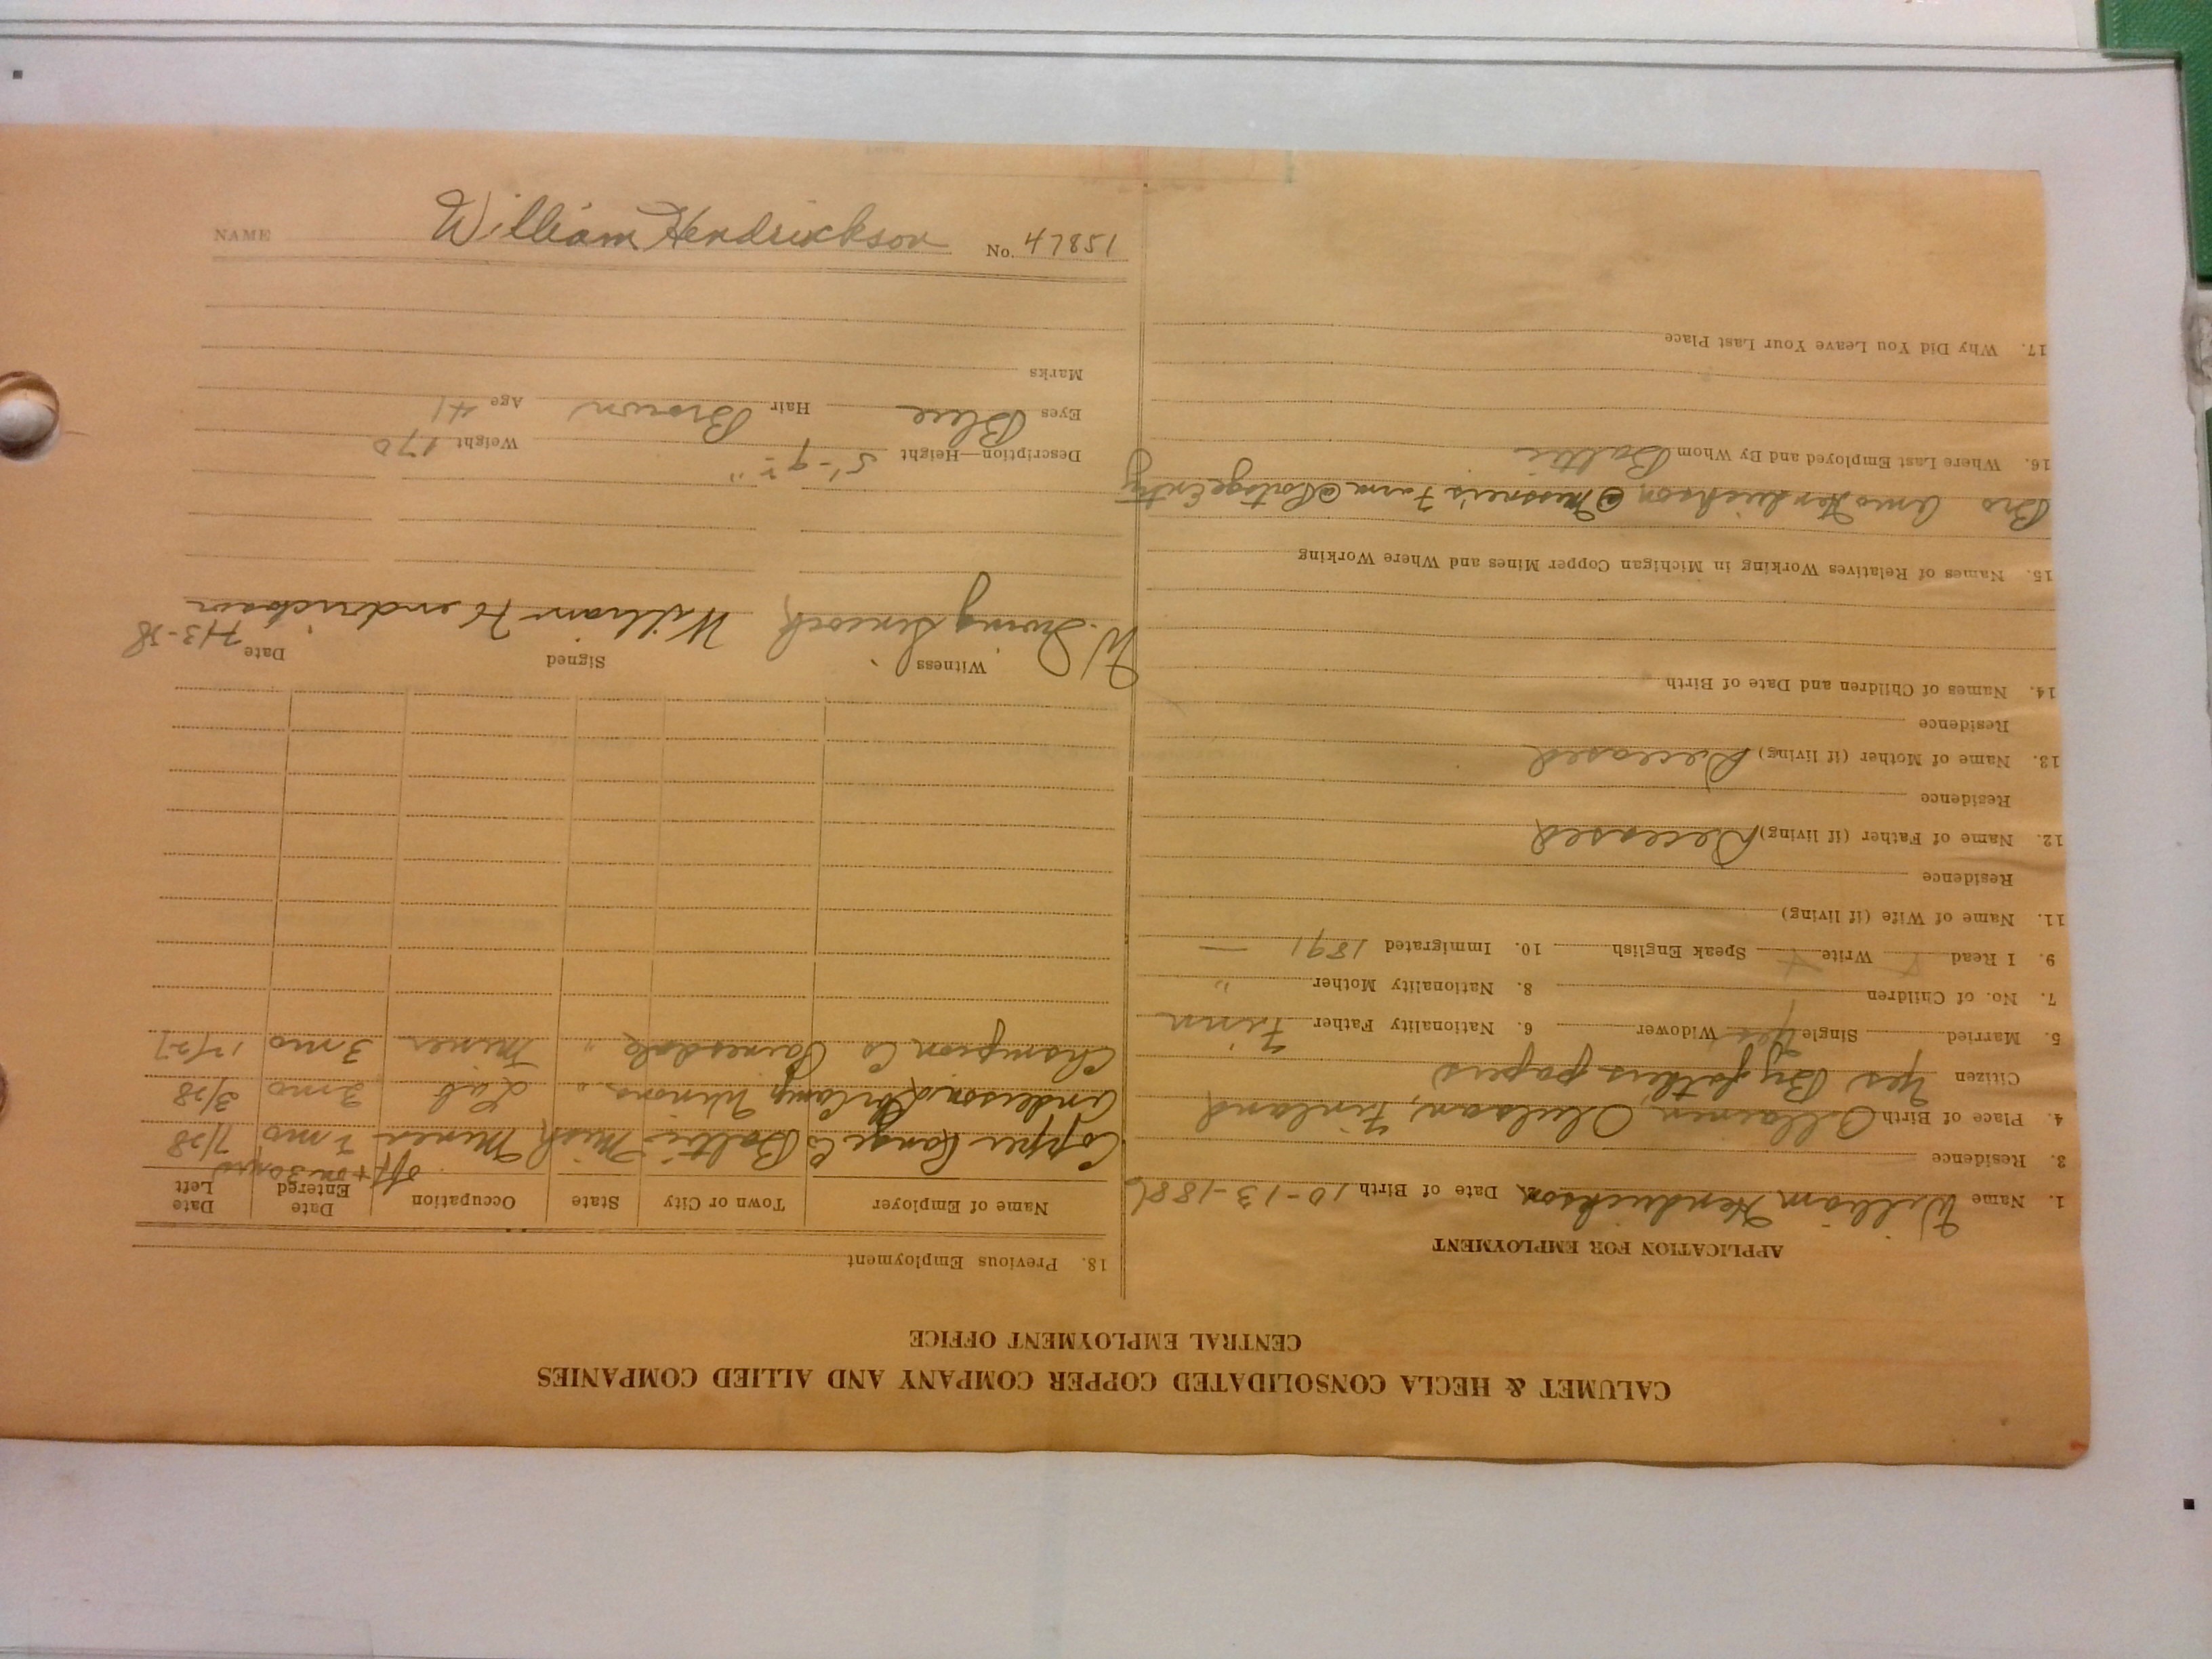 CALUMET & HECLA CONSOLIDATED COPPER COMPANY AND ALLIED COMPANIES
CENTRAL EMPLOYMENT OFFICE
APPLICATION FOR EMPLOYMENT
1. Name William Hendrickson Date of Birth 10-13-1886
3. Residence
4. Place of Birth Finland
Citizen Yes By fathers papers
5. Married Single Yes Widower 6. Nationality Father Finn
7. No. of Children 8. Nationality Mother "
9. I Read x Write x Speak English 10. Immigrated 1891 —
11. Name of Wife (if living)
Residence
12. Name of Father (if living) Deceased
Residence
13. Name of Mother (if living) Deceased
Residence
14. Names of Children and Date of Birth
15. Names of Relatives Working in Michigan Copper Mines and Where Working
Bro Hendrickson @ Farm @ Portage Entry
16. Where Last Employed and By Whom Baltic
17. Why Did You Leave Your Last Place
18. Previous Employment
Name of Employer Town or City State Occupation Date Entered Date Left
off + on 30 yrs
Copper Range Co Baltic Mich Miner 2 mo 7/28
Anderson Camp Winona " Lab 3 mo 3/28
Champion Co Painesdale " Miner 3 mo 12/27
Witness Signed Date 7-13-28
W. Irving William Hendrickson
Description—Height 5'-9½" Weight 170
Eyes Blue Hair Brown Age 41
Marks
NAME William Hendrickson No. 47851